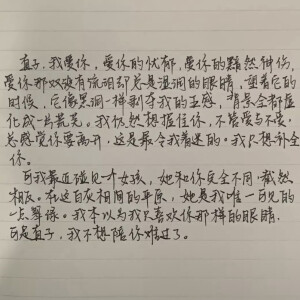 直子,我爱你,爱你的忧郁,爱你的黯然神伤,
爱你那双没有流泪却总是湿润的眼睛,望着它的
时候,它像黑洞一样剥夺我的五感,背景全都虚
化成一片荒芜。我仍然想抱住你,不管爱与不爱,
总感觉你要离开,这是最令我着迷的。我只想补全
你。
可我最近碰见一个女孩,她和你完全不同,截然
相反。在这白灰相间的平原,她是我唯一可见的
一点翠绿。我本以为我只喜欢你那样的眼睛,
可是直子,我不想陪你难过了。